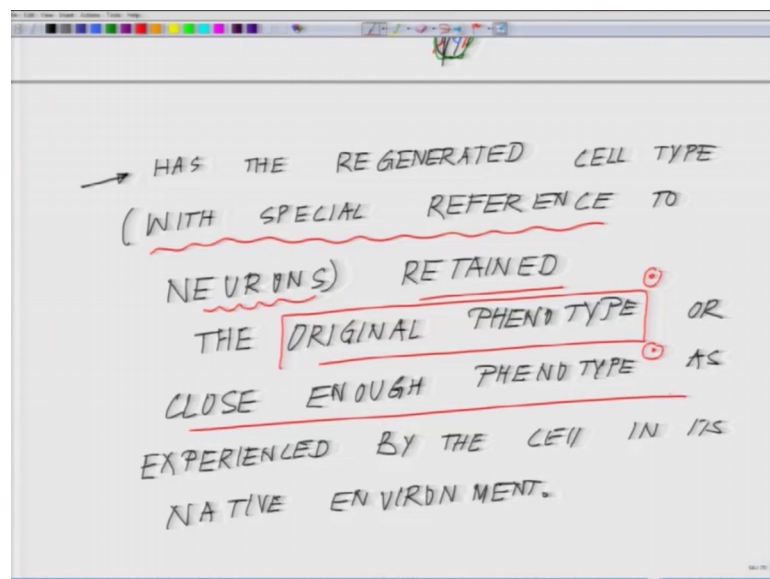 → HAS THE REGENERATED CELL TYPE
(WITH SPECIAL REFERENCE TO
NEURONS) RETAINED
THE ORIGINAL PHENOTYPE OR
CLOSE ENOUGH PHENOTYPE AS
EXPERIENCED BY THE CELL IN ITS
NATIVE ENVIRONMENT.